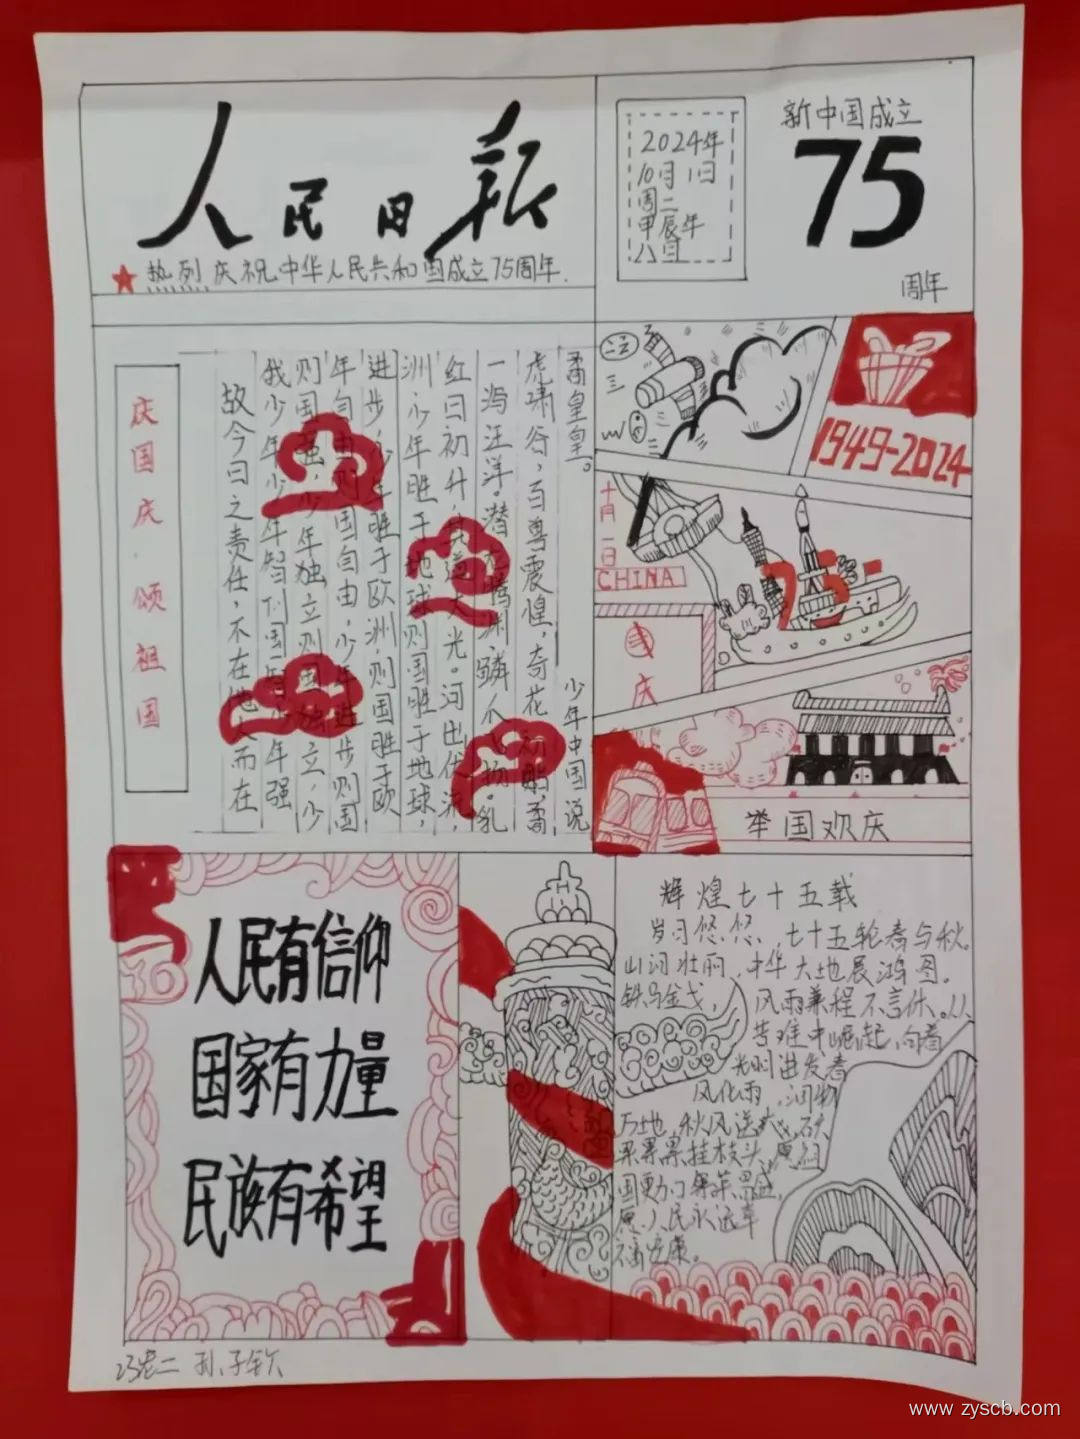 人民日报
热烈庆祝中华人民共和国成立75周年.
2024年
10月1日
周二
甲辰年
八月
新中国成立
75
周年
庆国庆·颂祖国
少年中国说
故今日之责任,不在他人,而在
我少年。少年智则国智,少年强
则国强,少年独立则国独立,少
年自由则国自由,少年进步则国
进步,少年胜于欧洲,则国胜于欧
洲,少年胜于地球,则国胜于地球,
红日初升,其道大光。河出伏流,
一泻汪洋。潜龙腾渊,鳞爪飞扬。乳
虎啸谷,百兽震惶,奇花初胎,矞
矞皇皇。
1949-2024
十月一日
CHINA
75
庆
举国欢庆
人民有信仰
国家有力量
民族有希望
辉煌七十五载
岁月悠悠,七十五轮春与秋。
山河壮丽,中华大地展鸿图。
铁马金戈,风雨兼程不言休。从
苦难中崛起,向着
光明进发着
风化雨,润物
万地,秋风送爽,硕
果累累挂枝头,愿祖
国
愿人民永远幸
福安康。
孙子钦
www.zyscb.com